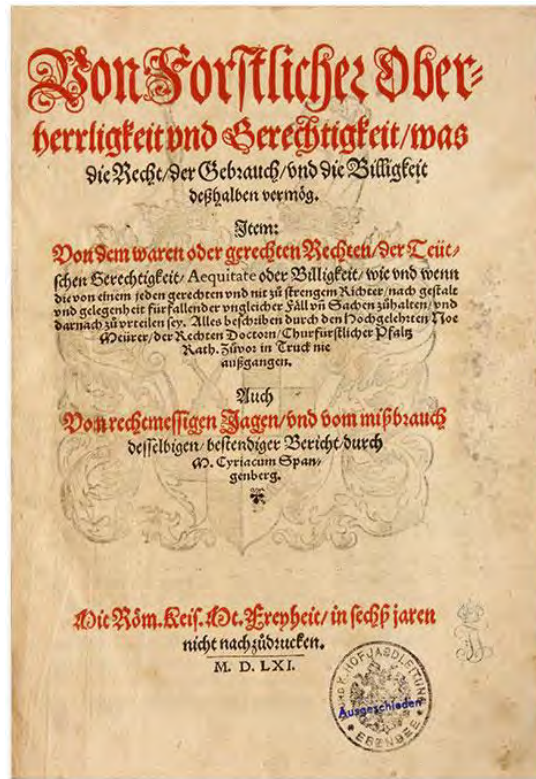 Von Forſtlicher Ober⸗
herrligkeit vnd Gerechtigkeit/was
die Recht/der Gebrauch/vnd die Billigkeit
deßhalben vermög.
Item:
Von dem waren oder gerechten Rechten/der Teüt⸗
ſchen Gerechtigkeit/Aequitate oder Billigkeit/wie vnd wenn
die von einem jeden gerechten vnd nit zů ſtrengem Richter/nach geſtalt
vnd gelegenheit fürfallender vngleicher Fäll vñ Sachen zůhalten/vnd
darnach zů vrteilen ſey. Alles beſchriben durch den Hochgelehrten Noe
Meürer/der Rechten Doctorn/Churfürſtlicher Pfaltz
Rath. Zůvor in Truck nie
außgangen.
Auch
Vom rechemeſſigen Jagen/vnd vom mißbrauch
deſſelbigen/beſtendiger Bericht/durch
M. Cyriacum Span⸗
genberg.
Mit Röm. Keiſ. Mt. Freyheit/in ſechß jaren
nicht nachzůdrucken.
M. D. LXI.
K. HOFJAGDLEITUNG
Ausgeschieden
EBENSEE